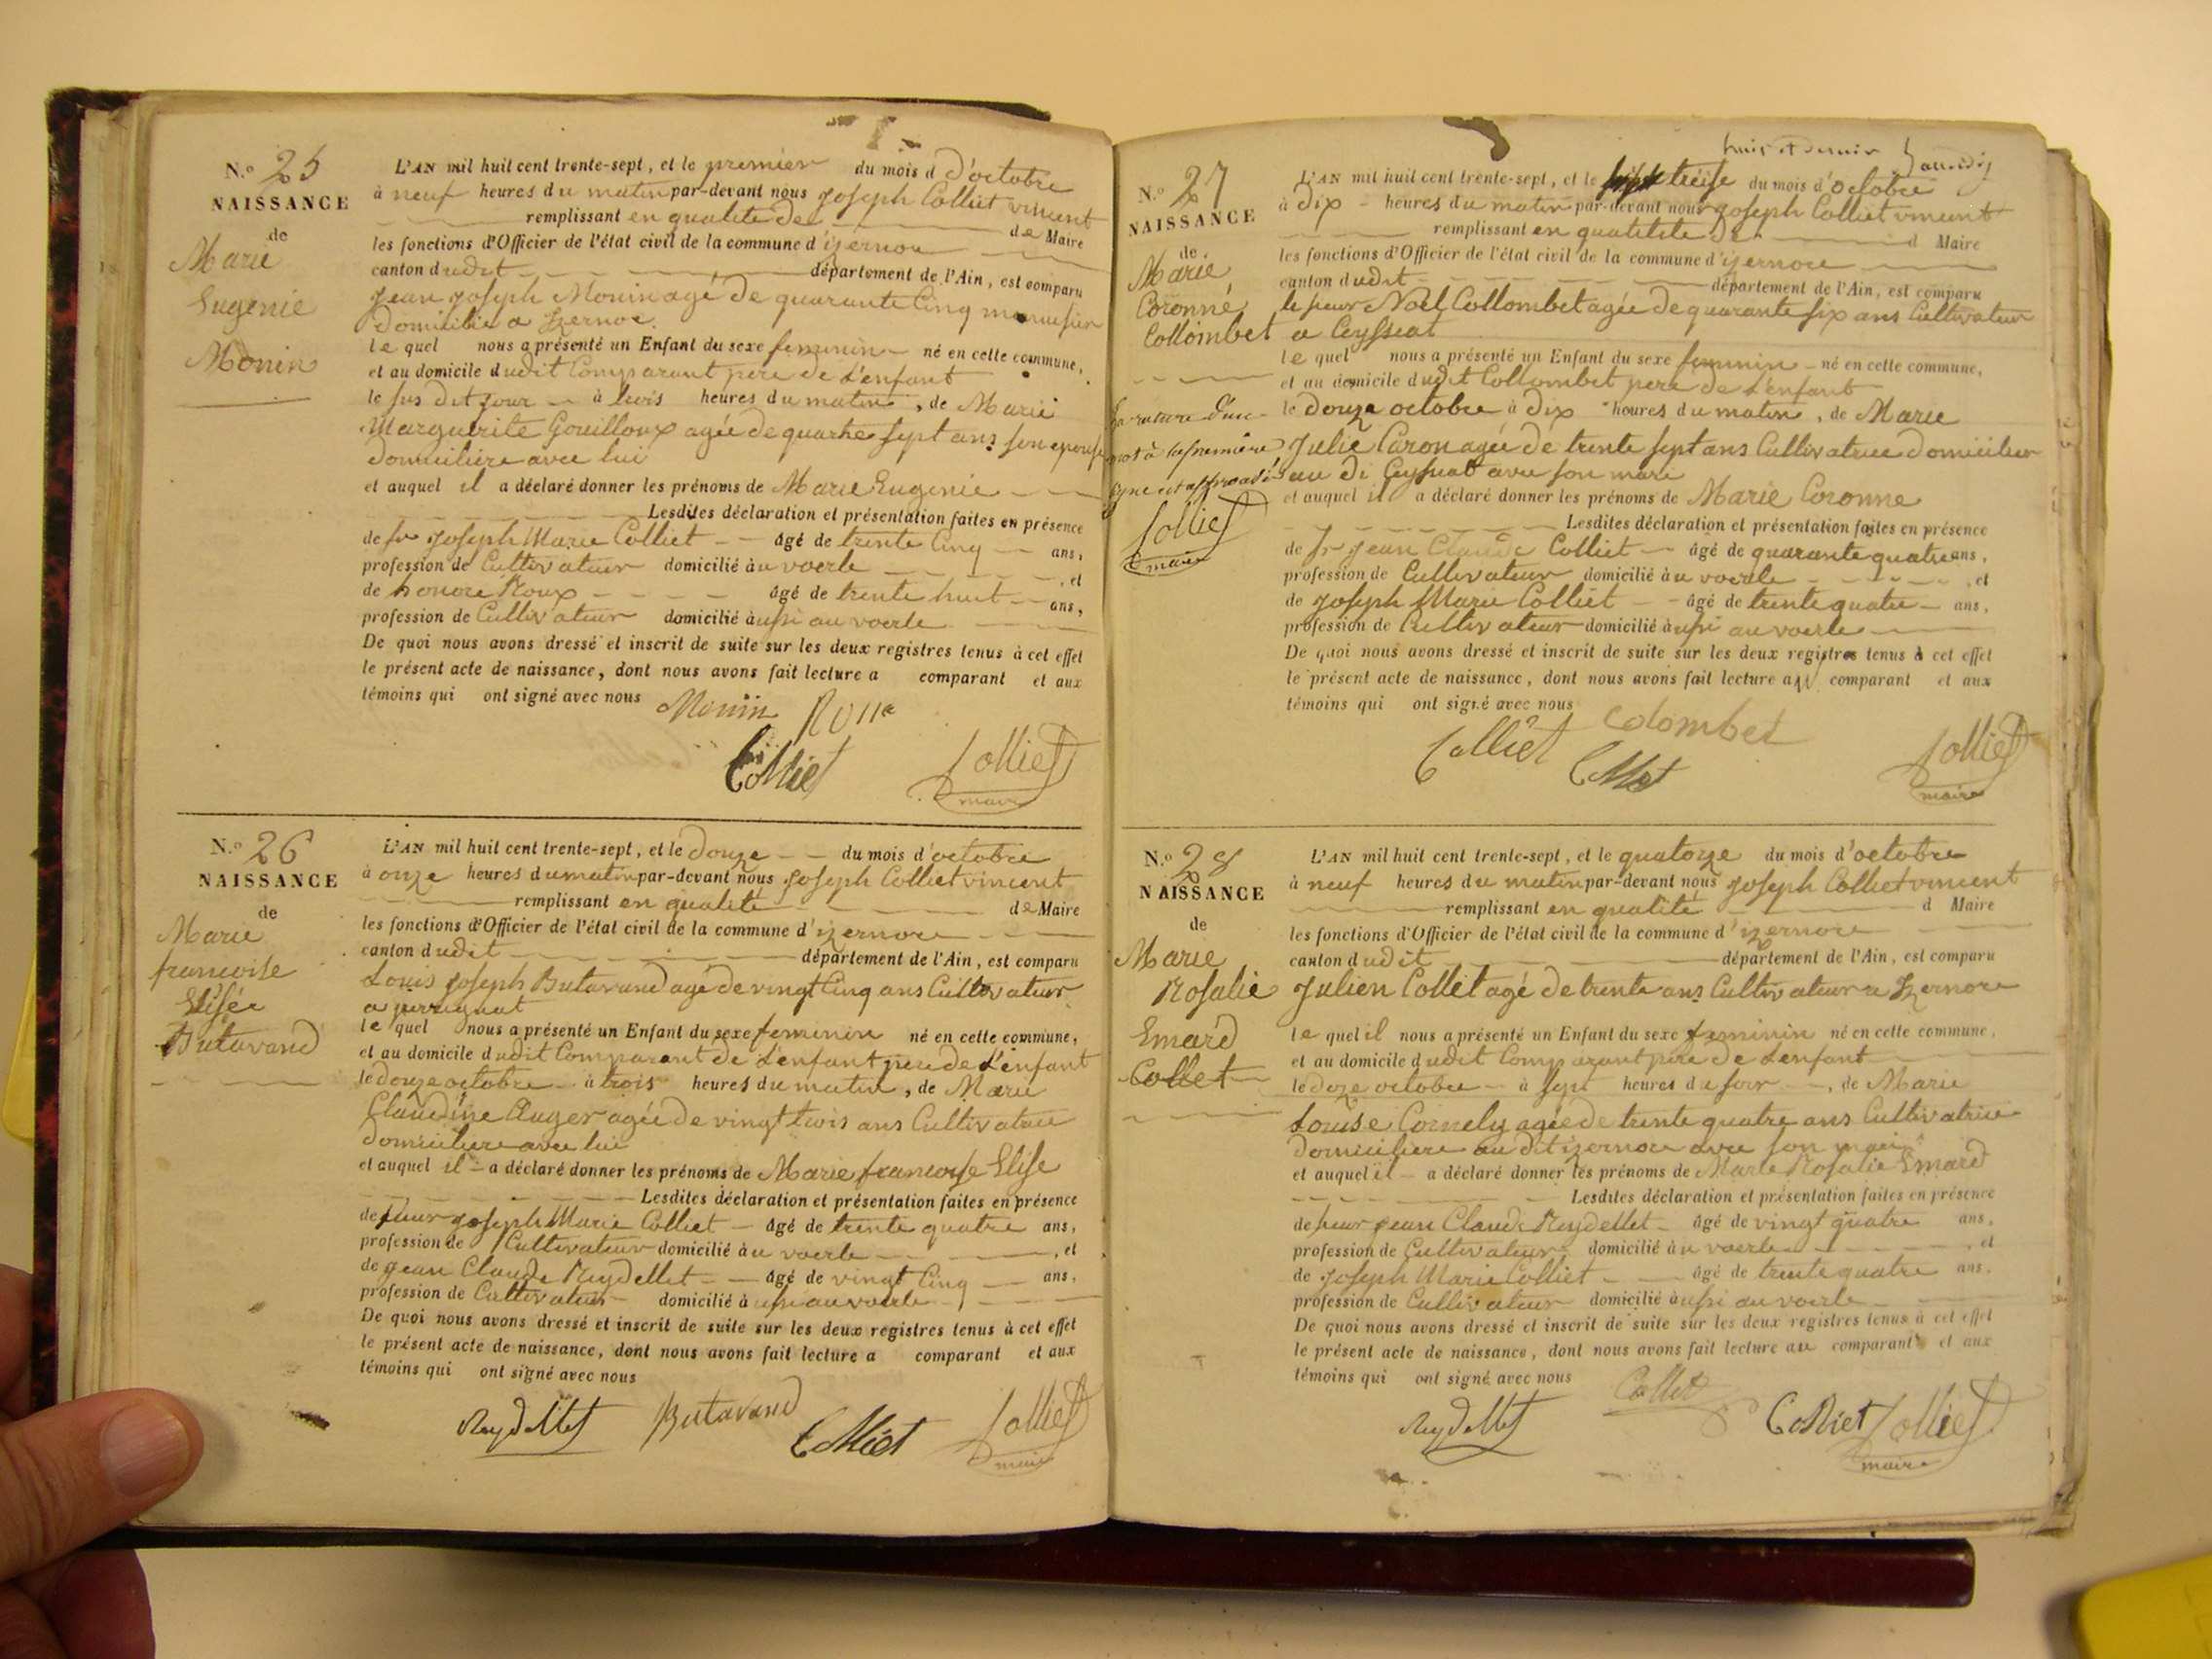 N.o 25
NAISSANCE
de
Marie
Eugenie
Monin
L'AN mil huit cent trente-sept, et le premier du mois d d'octobre
à neuf heures du matin par-devant nous Joseph Colliet vincent
remplissant en qualité de de Maire
les fonctions d'Officier de l'état civil de la commune d'izernore
canton dudit département de l'Ain, est comparu
Jean Joseph Monin agé de quarante Cinq menuisier
domicilié a Izernore
le quel nous a présenté un Enfant du sexe feminin né en cette commune,
et au domicile dudit Comparant pere de L'enfant
le sus dit jour à trois heures du matin, de Marie
Marguerite Gouilloux agée de quarante sept ans son epouse
domiciliére avec lui
et auquel il a déclaré donner les prénoms de Marie Eugenie
Lesdites déclaration et présentation faites en présence
de sr Joseph Marie Colliet âgé de trente Cinq ans,
profession de Cultivateur domicilié à u voerle
de honoré Roux âgé de trente huit ans, et
profession de Cultivateur domicilié à ussi au voerle
De quoi nous avons dressé et inscrit de suite sur les deux registres tenus à cet effet
le présent acte de naissance, dont nous avons fait lecture a comparant et aux
témoins qui ont signé avec nous
Monin Roux
Colliet Colliet
maire
N.o 26
NAISSANCE
de
Marie
francoise
Elisée
Butavand
L'AN mil huit cent trente-sept, et le douze du mois d'octobre
à onze heures du matin par-devant nous Joseph Colliet vincent
remplissant en qualité de Maire
les fonctions d'Officier de l'état civil de la commune d'izernore
canton dudit département de l'Ain, est comparu
Louis Joseph Butavand agé de vingt Cinq ans Cultivateur
a perrignat
le quel nous a présenté un Enfant du sexe feminin né en cette commune,
et au domicile dudit Comparant de L'enfant pere de L'enfant
le douze octobre à trois heures du matin, de Marie
Claudine Auger agée de vingt trois ans Cultivatrice
domiciliere avec lui
et auquel il a déclaré donner les prénoms de Marie francoise Elise
Lesdites déclaration et présentation faites en présence
de sieur Joseph Marie Colliet âgé de trente quatre ans,
profession de Cultivateur domicilié à u voerle, et
de Jean Claude Reydellet âgé de vingt Cinq ans,
profession de Cultivateur domicilié à ussi au voerle
De quoi nous avons dressé et inscrit de suite sur les deux registres tenus à cet effet
le présent acte de naissance, dont nous avons fait lecture a comparant et aux
témoins qui ont signé avec nous
Reydellet Butavand Colliet Colliet
maire
N.o 27
NAISSANCE
de
Marie
Coronné
Collombet
La rature d'un
mot à la premiere
ligne est approuvée
Colliet
maire
L'AN mil huit cent trente-sept, et le treize du mois d'octobre
à dix heures du matin par-devant nous Joseph Colliet vincent
remplissant en qualitité de d Maire
les fonctions d'Officier de l'état civil de la commune d'izernore
canton dudit département de l'Ain, est comparu
le sieur Noël Collombet agée de quarante six ans Cultivateur
a Ceyssiat
le quel nous a présenté un Enfant du sexe feminin né en cette commune,
et au domicile dudit Collombet pere de L'enfant
le douze octobre à dix heures du matin, de Marie
Julie Caron agée de trente sept ans Cultivatrice domicilier
au di Ceyssiat avec son mari
et auquel il a déclaré donner les prénoms de Marie Coronne
Lesdites déclaration et présentation faites en présence
de sr Jean Claude Colliet âgé de quarante quatre ans,
profession de Cultivateur domicilié à u voerle, et
de Joseph Marie Colliet âgé de trente quatre ans,
profession de Cultivateur domicilié à ussi au voerle
De quoi nous avons dressé et inscrit de suite sur les deux registres tenus à cet effet
le présent acte de naissance, dont nous avons fait lecture au comparant et aux
témoins qui ont signé avec nous
Colombet
Colliet Colliet Colliet
maire
N.o 28
NAISSANCE
de
Marie
Rosalie
Emard
Collet
L'AN mil huit cent trente-sept, et le quatorze du mois d'octobre
à neuf heures du matin par-devant nous Joseph Colliet vincent
remplissant en qualité d Maire
les fonctions d'Officier de l'état civil de la commune d'izernore
canton dudit département de l'Ain, est comparu
Julien Collet agé de trente ans Cultivateur a Izernore
le quel il nous a présenté un Enfant du sexe feminin né en cette commune,
et au domicile dudit Comparant pere de L'enfant
le doze octobre à sept heures du soir, de Marie
Louise Cornely agée de trente quatre ans Cultivatrice
domiciliere au dit izernore avec son mari
et auquel il a déclaré donner les prénoms de Marie Rosalie Emard
Lesdites déclaration et présentation faites en présence
de sieur Jean Claude Reydellet âgé de vingt quatre ans,
profession de Cultivateur domicilié à u voerle, et
de Joseph Marie Colliet âgé de trente quatre ans,
profession de Cultivateur domicilié à ussi au voerle
De quoi nous avons dressé et inscrit de suite sur les deux registres tenus à cet effet
le présent acte de naissance, dont nous avons fait lecture au comparant et aux
témoins qui ont signé avec nous
Collet
Reydellet Colliet Colliet
maire